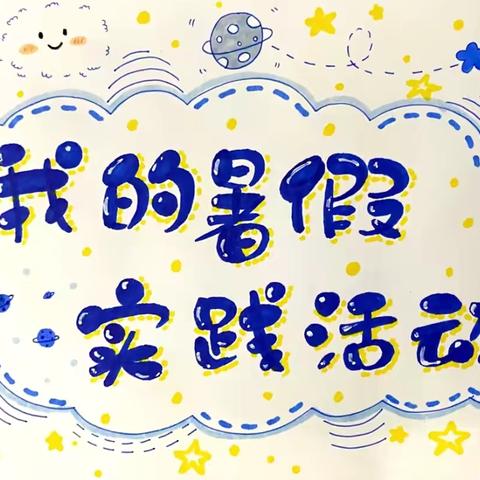 我的暑假
实践活动